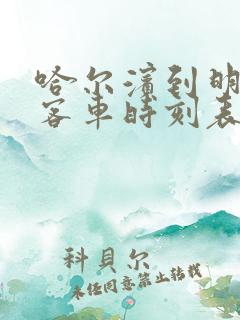 哈尔滨到明
客车时刻表
科貝尔
未经同意禁止转载